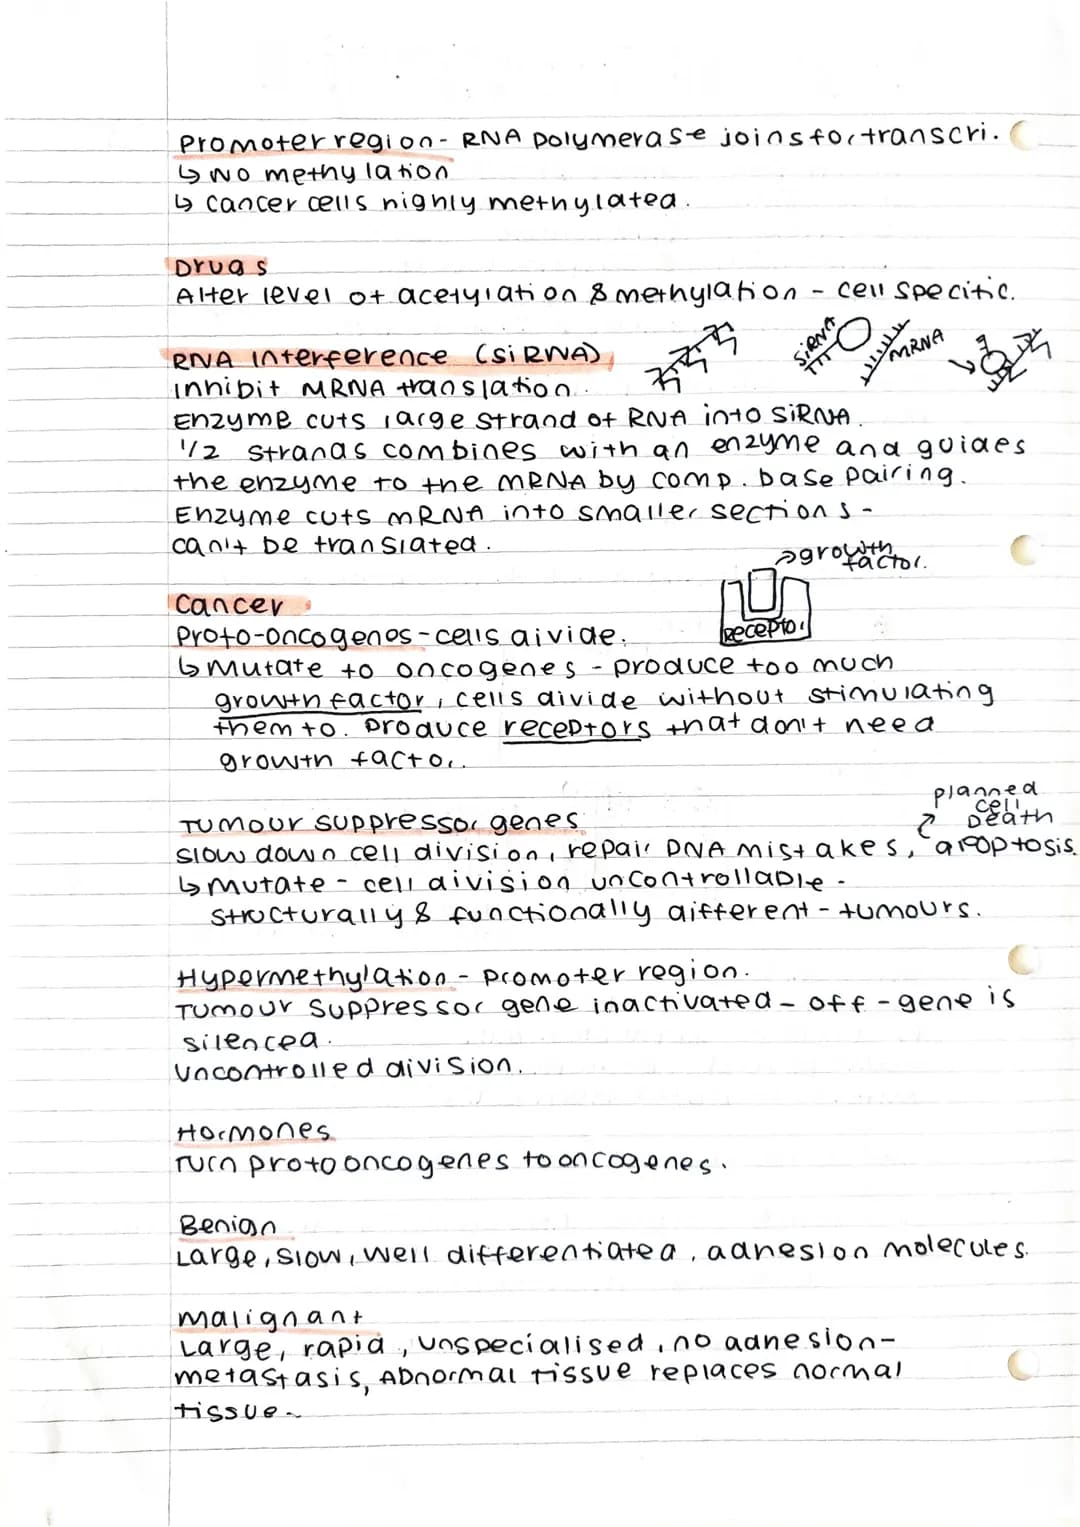 Promoter region - RNA polymerase joins for transcri.
↳ No methylation
↳ cancer cells highly methylated.
Drugs
Alter level of acetylation & methylation - cell specific.
RNA Interference (siRNA)
siRNA
mRNA
inhibit mRNA translation.
Enzyme cuts large strand of RNA into siRNA.
1/2 strands combines with an enzyme and guides
the enzyme to the mRNA by comp. base pairing.
Enzyme cuts mRNA into smaller sections -
can't be translated.
→ growth factor.
Receptor
Cancer
Proto-oncogenes - cells divide.
↳ Mutate to oncogenes - produce too much
growth factor, cells divide without stimulating
them to. Produce receptors that don't need
growth factor.
planned
cell
Death
Tumour suppressor genes
slow down cell division, repair DNA mistakes, apoptosis.
↳ Mutate - cell division uncontrollable -
structurally & functionally different - tumours.
Hypermethylation - promoter region.
Tumour suppressor gene inactivated - off - gene is
silenced.
Uncontrolled division.
Hormones
Turn proto oncogenes to oncogenes.
Benign
Large, slow, well differentiated, adhesion molecules.
Malignant
Large, rapid, unspecialised, no adhesion -
metastasis, Abnormal tissue replaces normal
tissue -